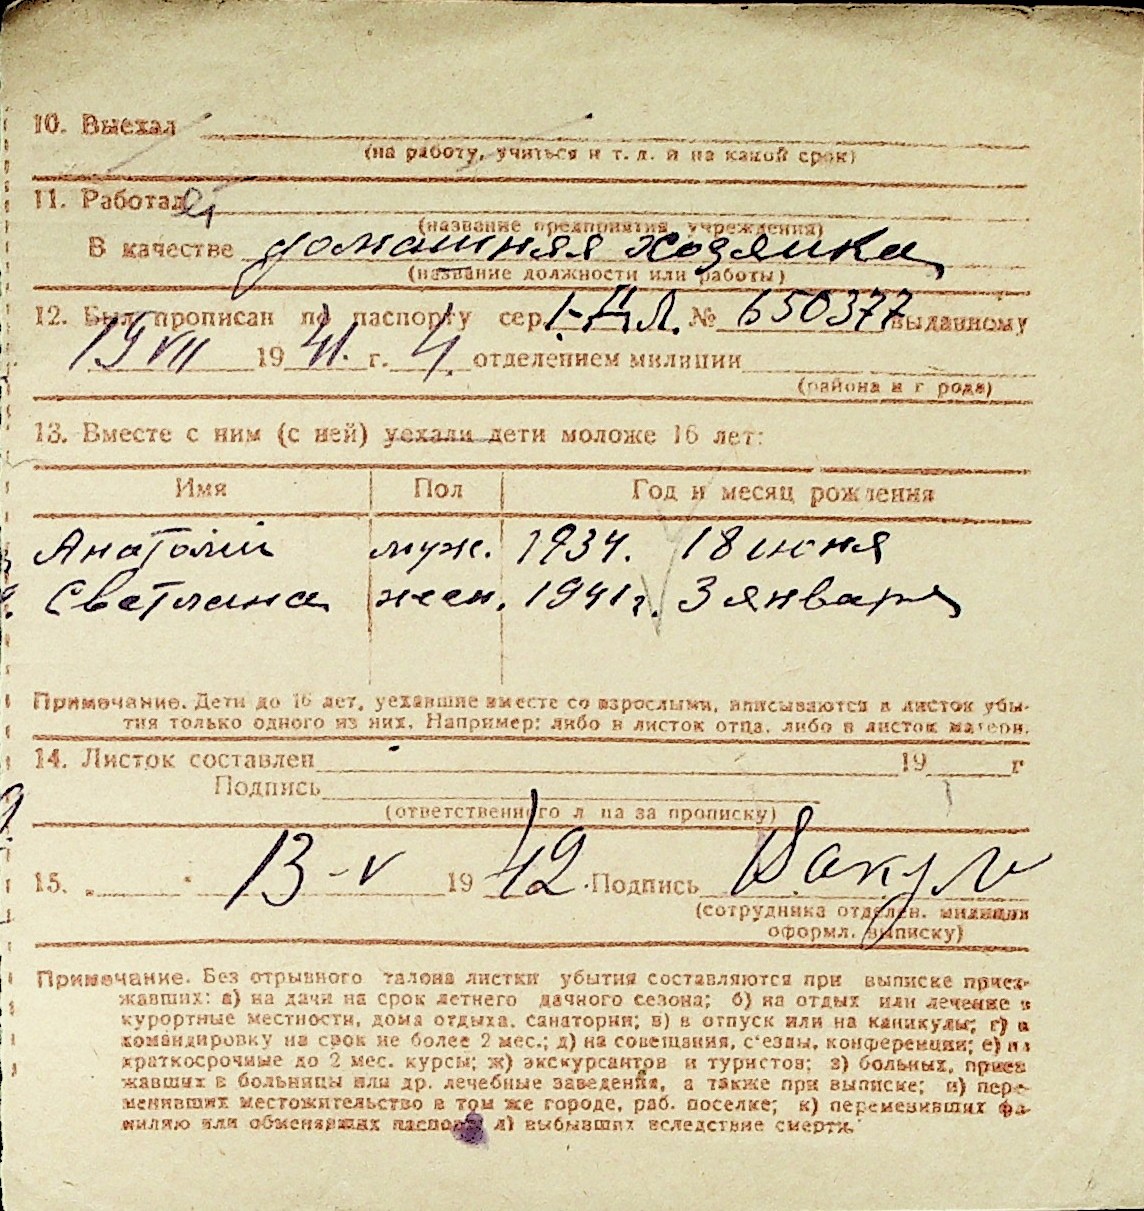 10. Выехал
(на работу, учиться и т. д. и на какой срок)
11. Работает
(название предприятия учреждения)
В качестве домашняя хозяика
(название должности или работы)
12. Был прописан по паспорту сер. I-ДЛ. № 650377 выданному
19 VII 1941. г. 4. отделением милиции
(района и города)
13. Вместе с ним (с ней) уехали дети моложе 16 лет:
Имя Пол Год и месяц рождения
Анатолий муж. 1934. 18 июня
Светлана жен. 1941 г. 3 января
Примечание. Дети до 16 лет, уехавшие вместе со взрослыми, вписываются в листок убы-
тия только одного из них. Например: либо в листок отца, либо в листок матери.
14. Листок составлен 19 г
Подпись
(ответственного лица за прописку)
15. „ “ 13-V 1942 Подпись
(сотрудника отделен. милиции
оформл. выписку)
Примечание. Без отрывного талона листки убытия составляются при выписке приез-
жавших: а) на дачи на срок летнего дачного сезона; б) на отдых или лечение в
курортные местности, дома отдыха, санатории; в) в отпуск или на каникулы; г) в
командировку на срок не более 2 мес.; д) на совещания, с'езды, конференции; е) на
краткосрочные до 2 мес. курсы; ж) экскурсантов и туристов; з) больных, приез
жавших в больницы или др. лечебные заведения, а также при выписке; и) пере-
менивших местожительство в том же городе, раб. поселке; к) переменивших фа-
милию или обменявших паспорт л) выбывших вследствие смерти.